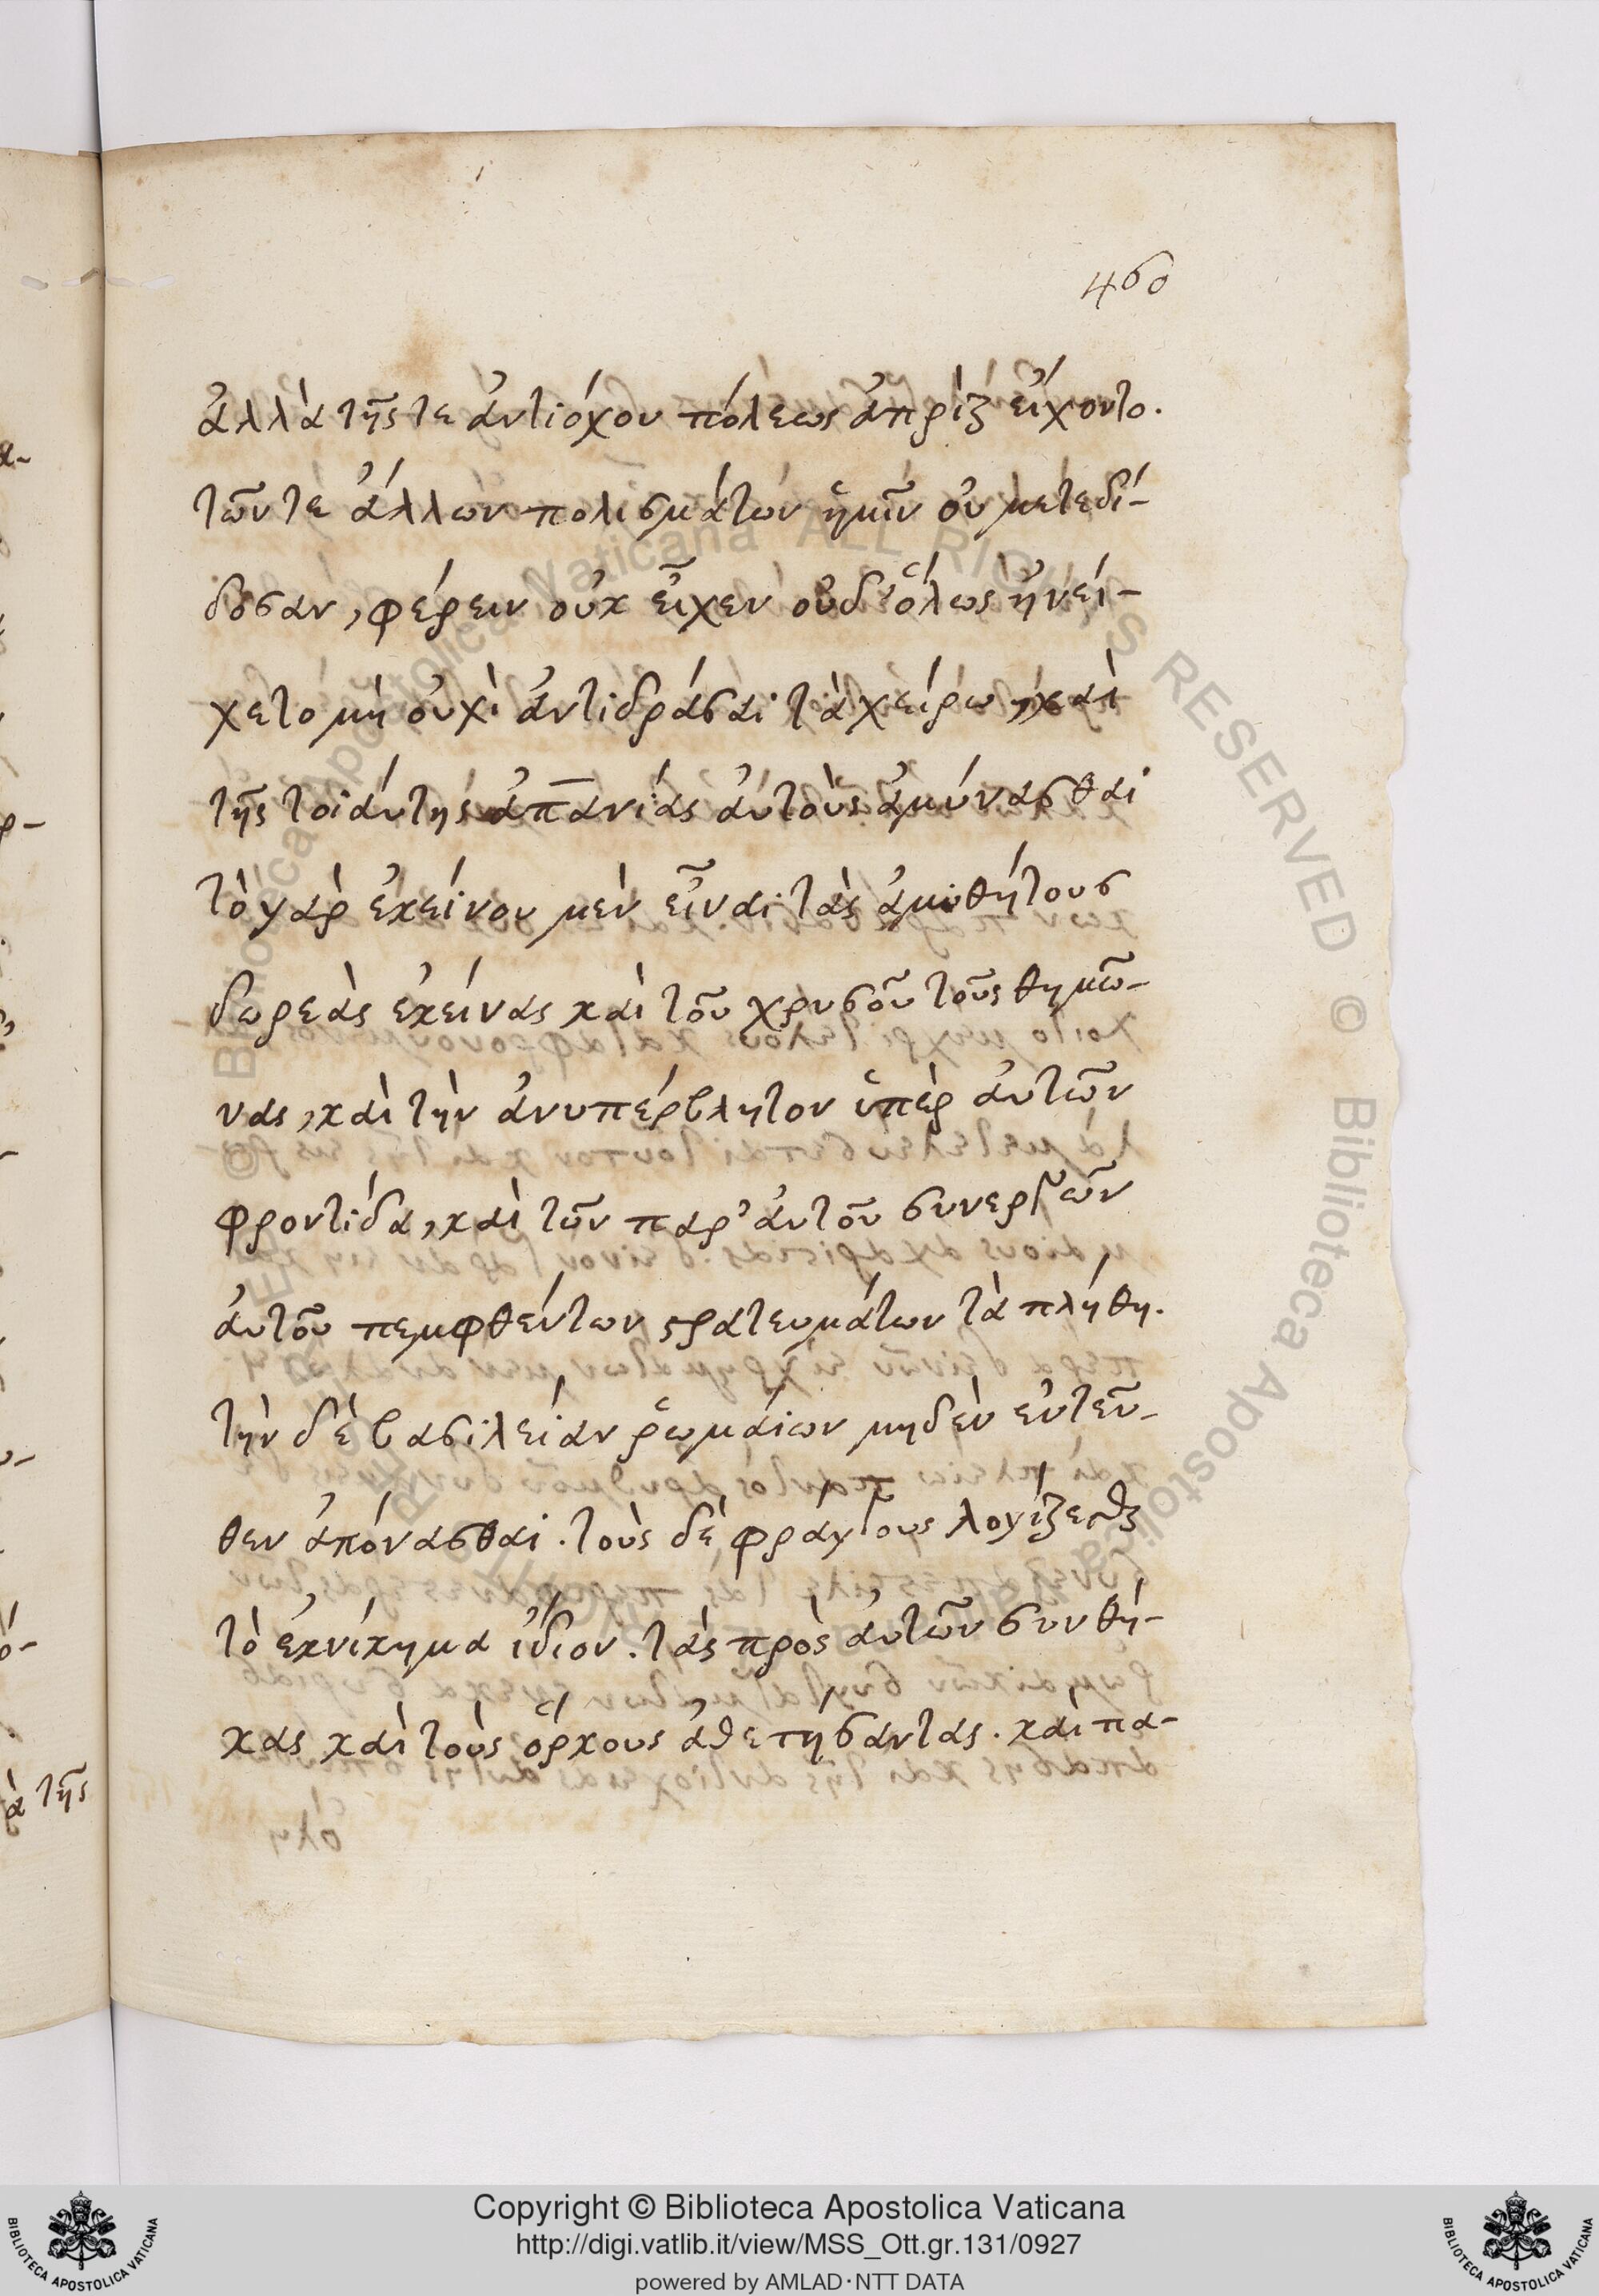 460
ἀλλὰ τῆς τε ἀντιόχου πόλεως ἀπρὶξ εἴχοντο.
τῶν τε ἄλλων πολισμάτων ἡμῖν οὐ μετεδί-
δοσαν, φέρειν οὐκ εἶχεν οὐδ' ὅλως ἠνεί-
χετο μὴ οὐχὶ ἀντιδράσαι τὰ χείρω, καὶ
τῆς τοιάυτης ἀπανίας ἀυτοὺς ἀμύνασθαι
τὸ γὰρ ἐκείνου μὲν εἶναι τὰς ἀμυθήτους
δωρεὰς ἐκείνας καὶ τοῦ χρυσοῦ τοῦς θημῶ-
νας, καὶ τὴν ἀνυπέρβλητον ὑπὲρ ἀυτῶν
φροντίδα, καὶ τῶν παρ' ἀυτοῦ συνεργῶν
ἀυτοῦ πεμφθέντων στρατευμάτων τὰ πλήθη.
τὴν δὲ βασιλείαν ῥωμάιων μηδὲν ἐντεῦ-
θεν ἀπόνασθαι. τοὺς δὲ φράγγους λογίζεσθαι
τὸ ἐκνίκημα ἴδιον. τὰς πρὸς ἀυτῶν συνθή-
κας καὶ τοὺς ὅρκους ἀθετήσαντας. καὶ πα-
ὰ τῆς
Copyright © Biblioteca Apostolica Vaticana
http://digi.vatlib.it/view/MSS_Ott.gr.131/0927
powered by AMLAD·NTT DATA
BIBLIOTECA APOSTOLICA VATICANA
BIBLIOTECA APOSTOLICA VATICANA